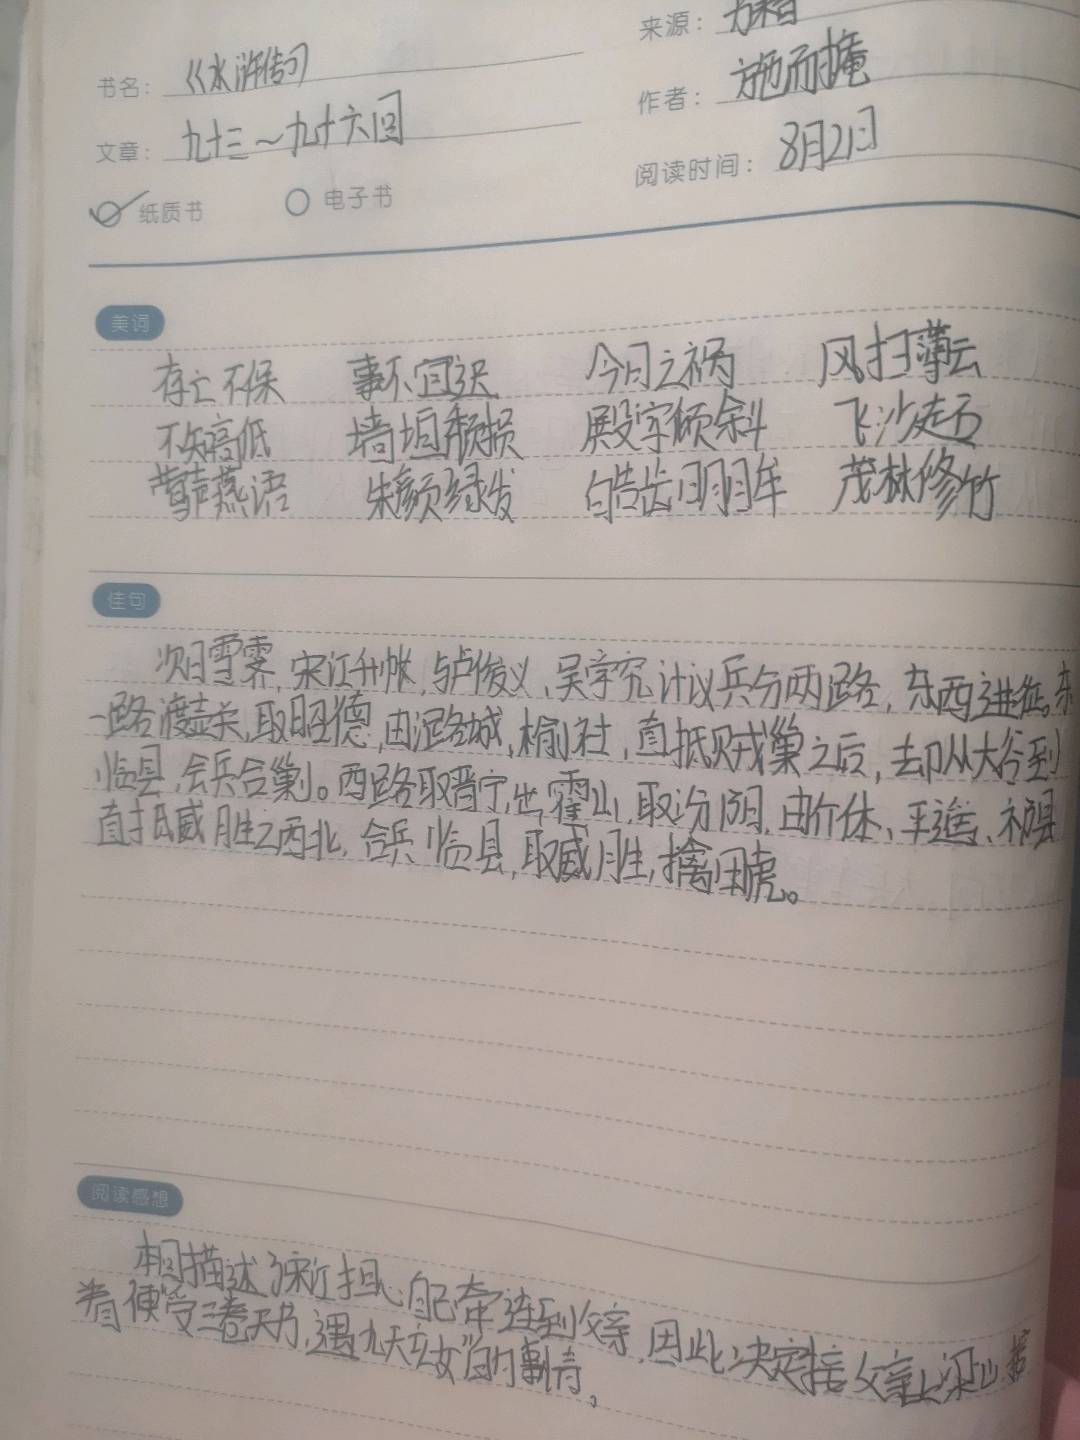 来源：
书名：《水浒传》
作者：施耐掩
文章：九十三～九十六回
阅读时间：8月21日
纸质书 电子书
美词
存亡不保 事不宜迟 今日之祸 风扫薄云
不知高低 墙垣颓损 殿宇倾斜 飞沙走石
莺声燕语 朱颜绿发 皓齿明眸 茂林修竹
佳句
次日雪霁，宋江升帐，与卢俊义、吴学究计议兵分两路，东西进征。东
一路渡壶关，取昭德，由潞城，榆社，直抵贼巢之后，却从大谷到
临县，会兵合剿。西路取晋宁，出霍山，取汾阳，由介休、平遥、祁县
直抵威胜之西北，合兵临县，取威胜，擒田虎。
阅读感想
本回描述了宋江担心自己牵连到父亲，因此决定接父亲上梁山，接
着便“受三卷天书，遇九天玄女”的事情。